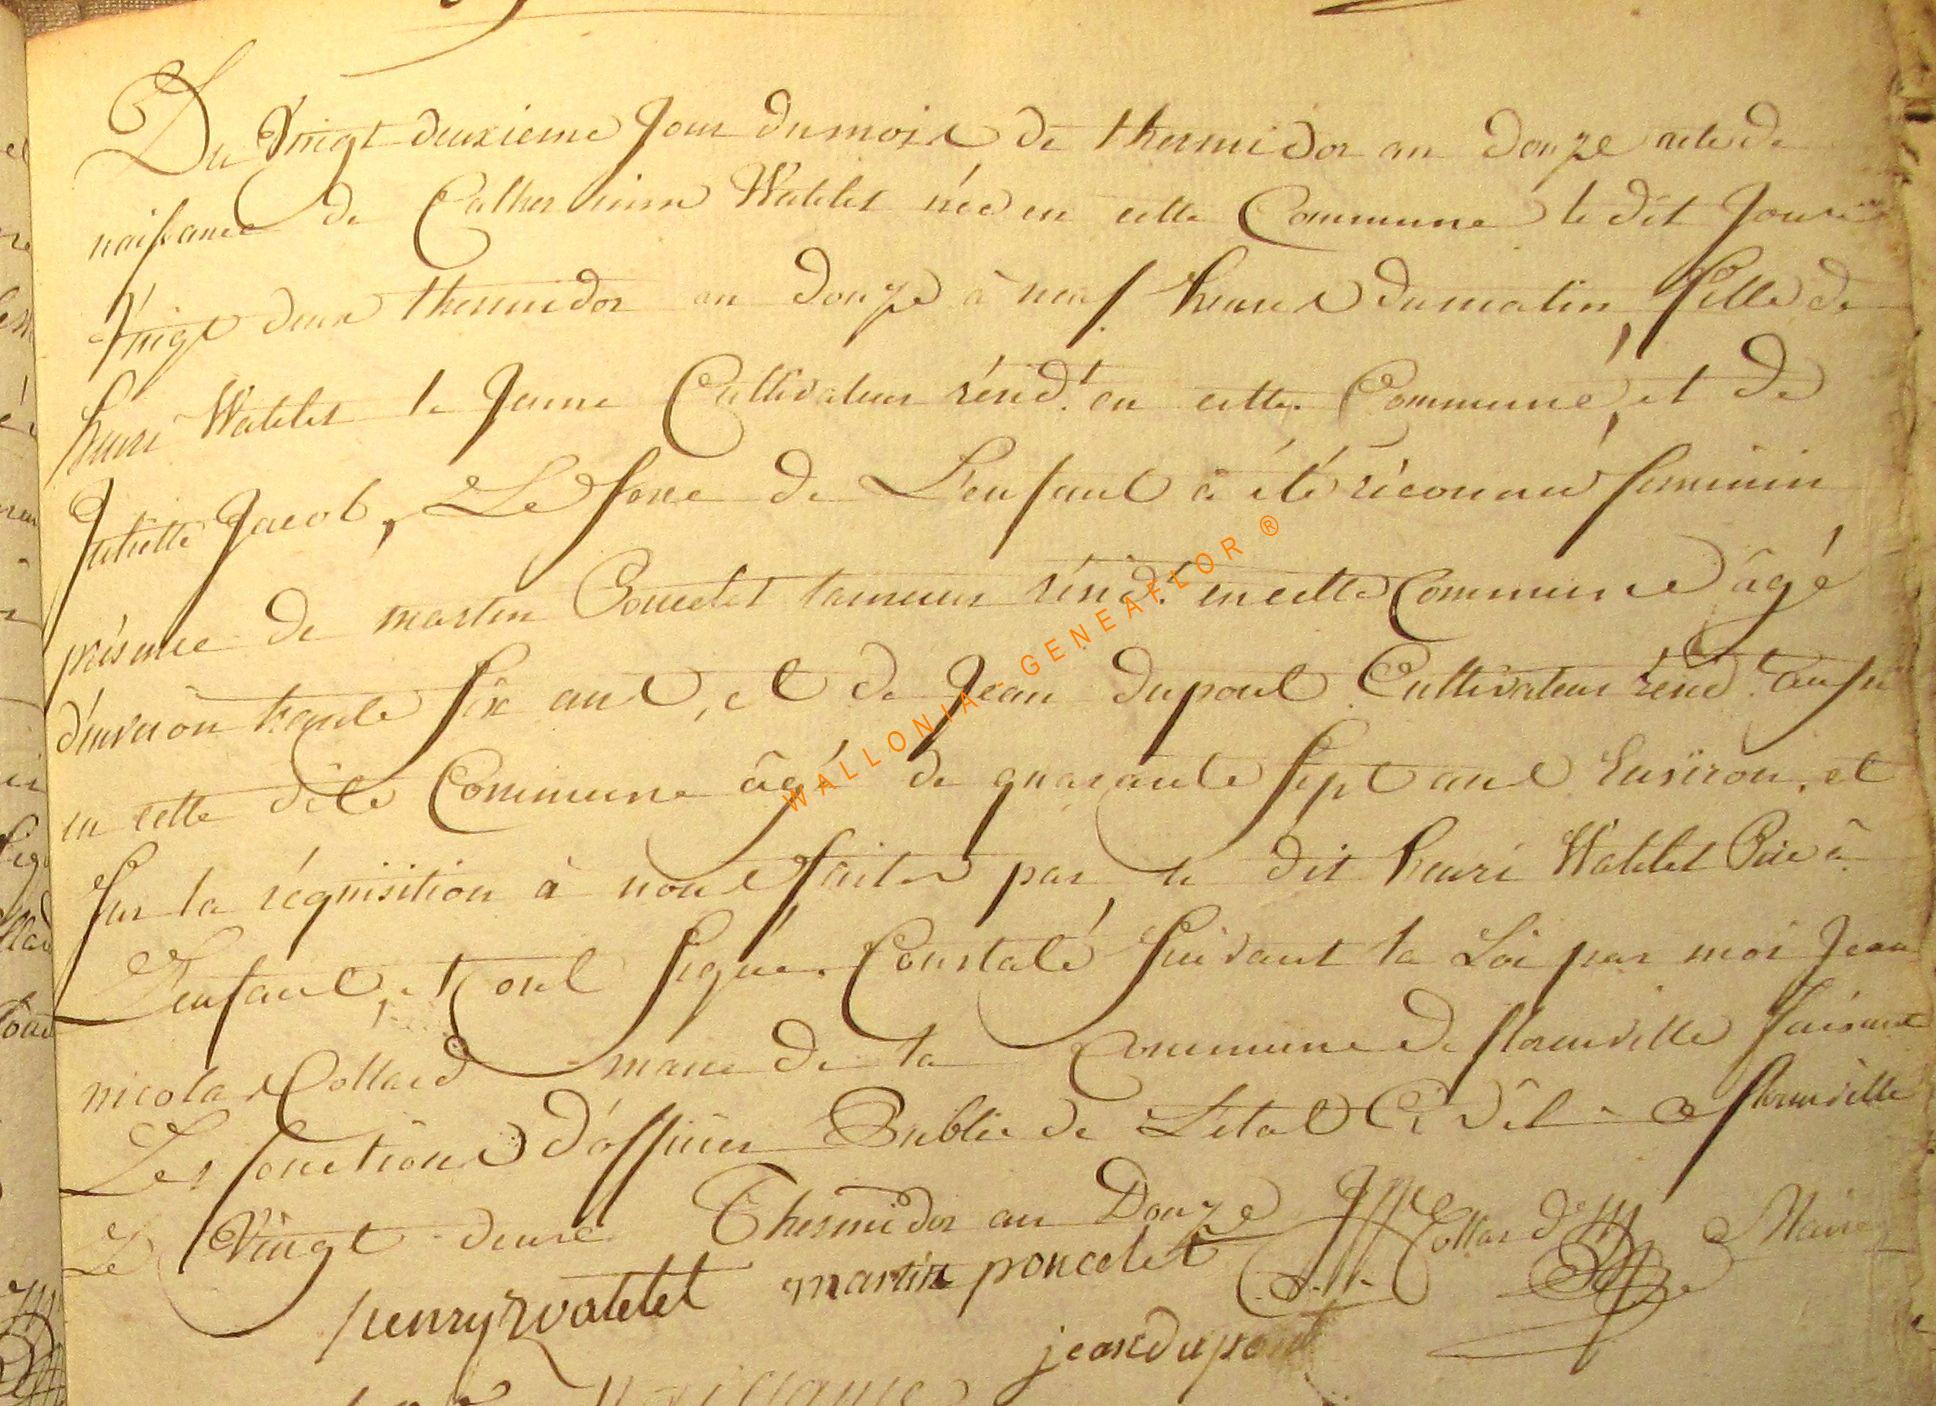 Du Vingt deuxieme Jour du mois de thermidor an douze acte de
naissance de Catherinne Watelet née en cette Commune le dit Jour
Vingt deux thermidor an douze à neuf heures du matin, fille de
henri Watelet le Jeune Cultivateur résid.t en cette Commune, et de
Jacob, Le sexe de L'enfant à été réconnu feminin
présence de martin Poncelet tanneur résid.t en cette Commune âgé
d'environ trente six ans, et de Jean dupont Cultivateur résid.t aussi
en cette dite Commune âgé de quarante sept ans Environ, et
sur la réquisition à nous faite par le dit henri Watelet Pere à
L'enfant, et ont signé. Constaté suivant la Loi par moi Jean
nicolas Collard maire de la Commune de florenville faisant
Les fonctions d'officier Public de L'état Civil à florenville
Le Vingt deux Thermidor an Douze
Collard Maire
henry watelet martin poncelet
jean dupont
Naissance
WALLONIA - GENEAFLOR ®